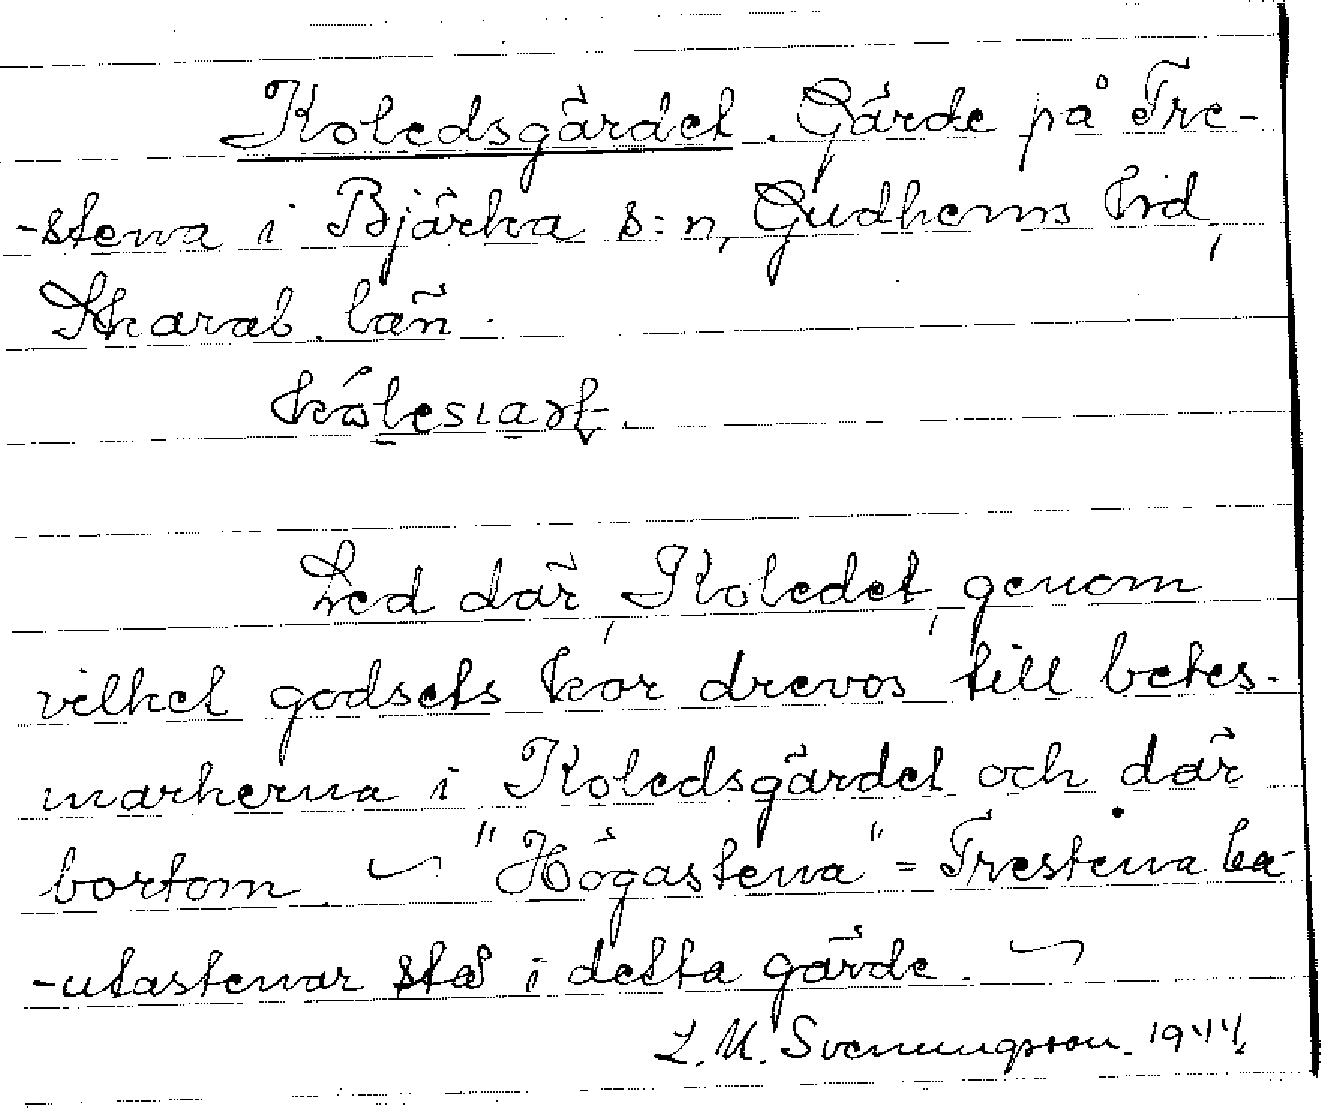 Koledsgärdet. Gärde på Tre-
-stena i Bjärka s:n, Gudhems hrd,
Skarab. län.
Led där, Koledet, genom
vilket godsets kor drevos till betes-
markerna i Koledsgärdet och där
bortom. "Högastena" = Trestena ba-
-utastenar stå i detta gärde.
L. M. Svenungsson. 1944.